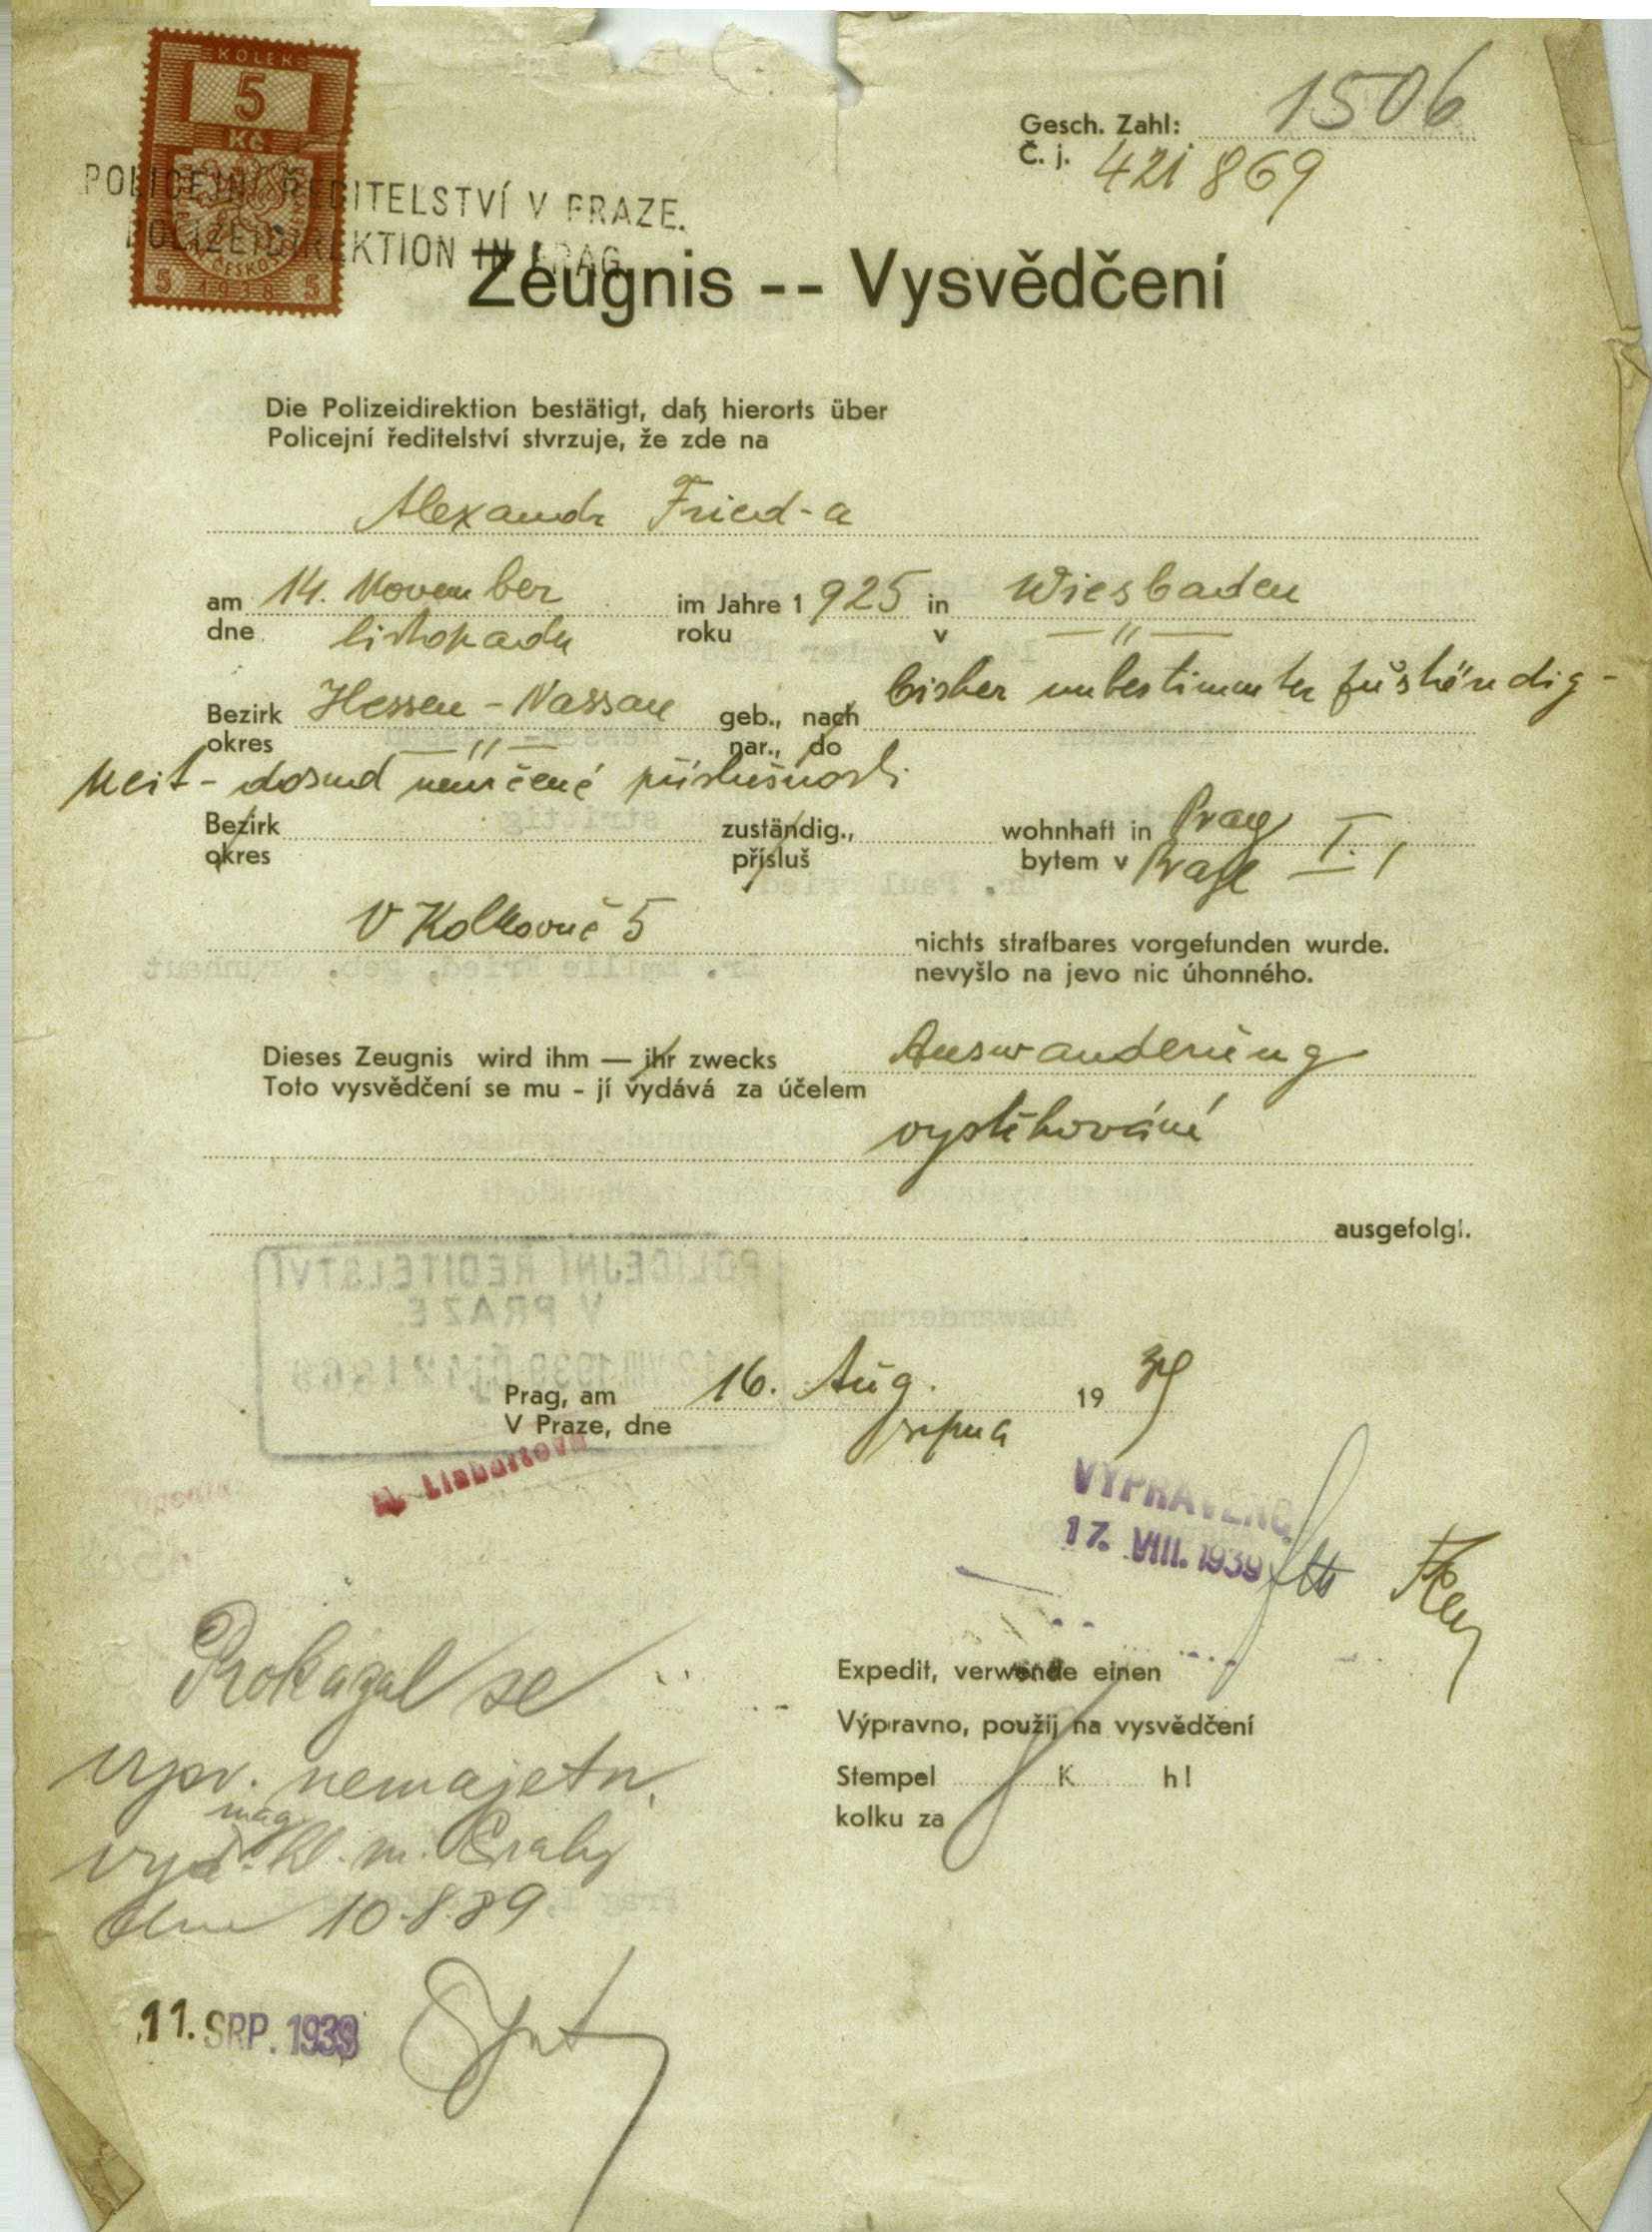 KOLEK
5
Kč
ČESKO
5 1938 5
POLICEJNÍ ŘEDITELSTVÍ V PRAZE.
POLIZEIDIREKTION IN PRAG
Gesch. Zahl: 1506
Č. j. 421 869
Zeugnis -- Vysvědčení
Die Polizeidirektion bestätigt, daß hierorts über
Policejní ředitelství stvrzuje, že zde na
Alexandr Fried-a
am 14. November im Jahre 1 925 in Wiesbaden
dne listopadu roku v — " —
Bezirk Hessen - Nassau geb., nach bisher unbestimmter Zuständig-
okres — " — nar., do
keit - dosud neurčené příslušnosti
Bezirk zuständig., wohnhaft in Prag I.,
okres přísluš bytem v Praze
V Kolkovně 5
nichts strafbares vorgefunden wurde.
nevyšlo na jevo nic úhonného.
Dieses Zeugnis wird ihm — ihr zwecks Auswanderung
Toto vysvědčení se mu - jí vydává za účelem
vystěhování
ausgefolgt.
POLICEJNÍ ŘEDITELSTVÍ
V PRAZE
12 VIII 1939 Č.j. 421869
Prag, am 16. Aug. 19 39
V Praze, dne srpna
VYPRAVENO
17. VIII. 1939
Prokázal se
vysv. nemajetn.
mag.
vyd. hl. m. Prahy
dne 10.8.39
Expedit, verwende einen
Výpravno, použij na vysvědčení
Stempel K h!
kolku za
11. SRP. 1939